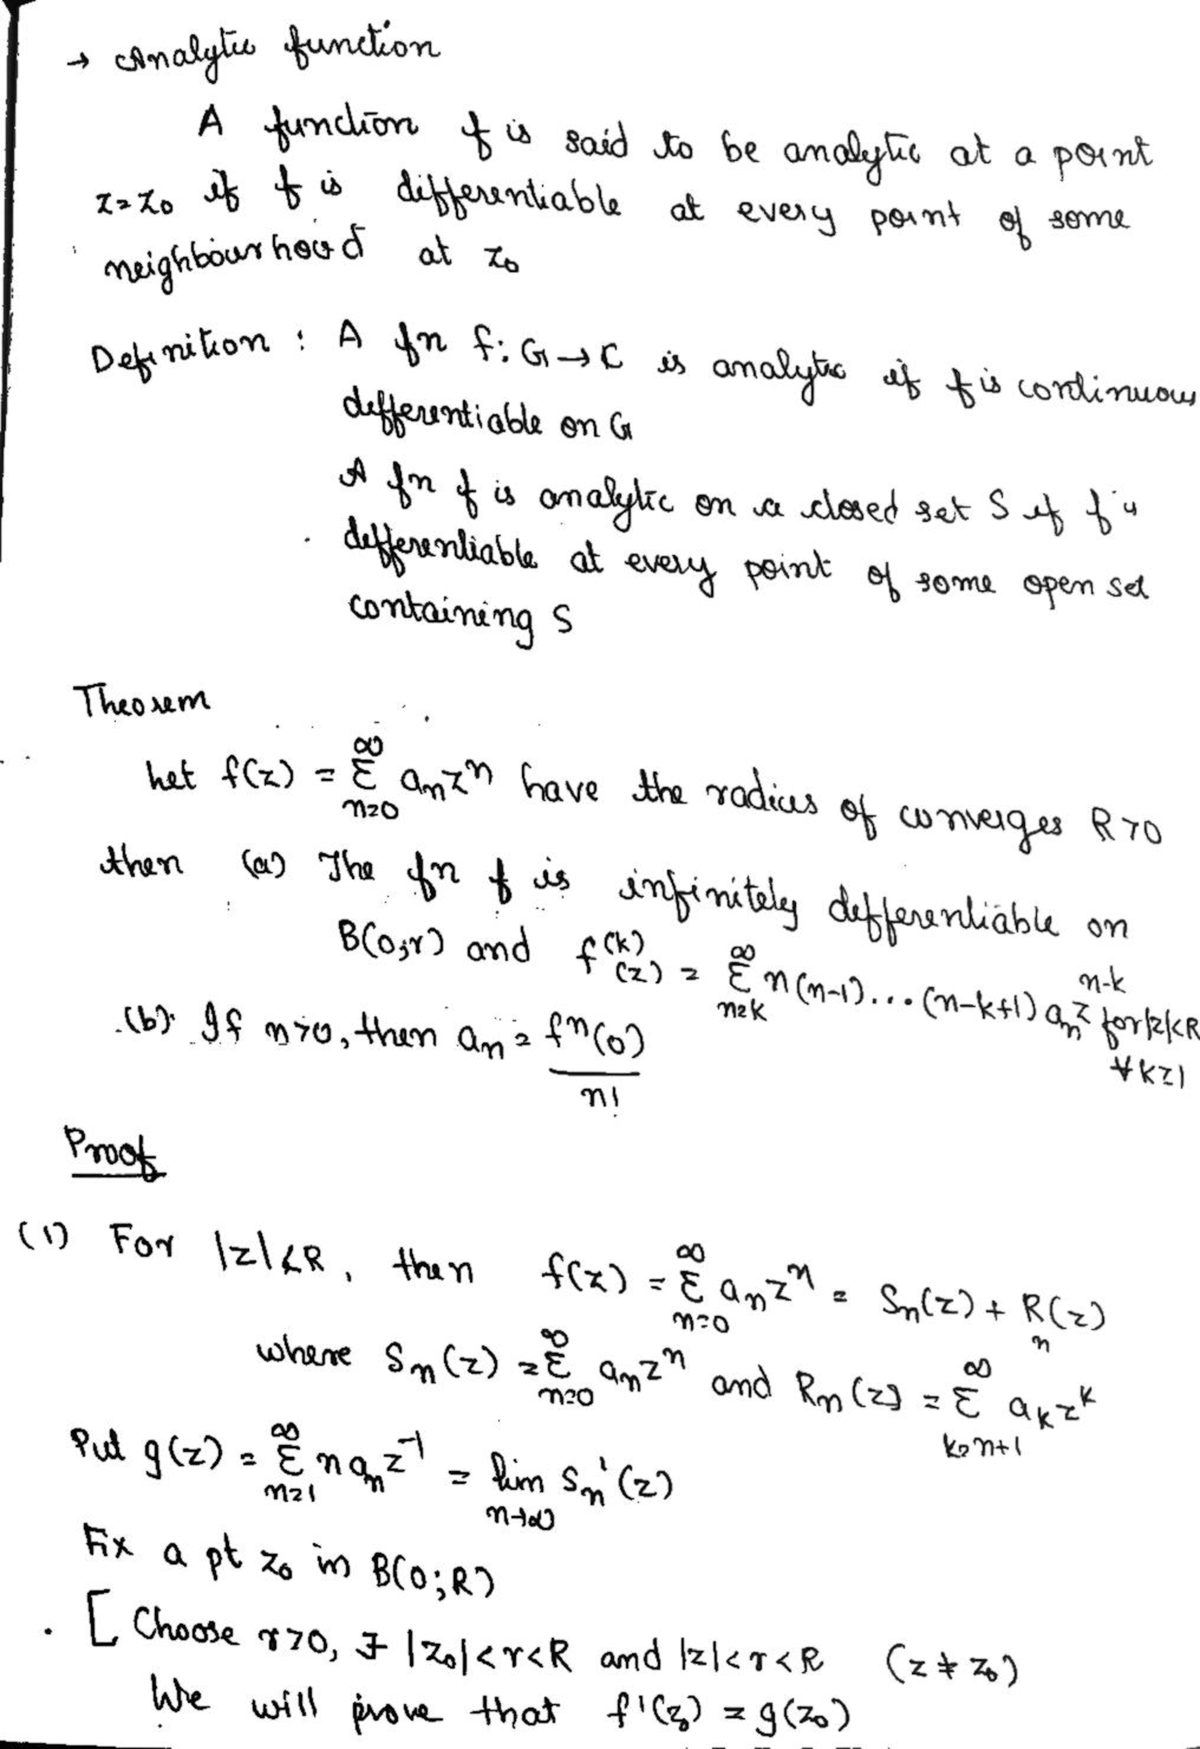 → Analytic function
A function f is said to be analytic at a point
z=z₀ if f is differentiable at every point of some
neighbourhood at z₀
Definition : A fn f: G→C is analytic if f is continuous
differentiable on G
A fn f is analytic on a closed set S if f is
differentiable at every point of some open set
containing S
Theorem
Let f(z) = Σ_{n=0}^{∞} aₙzⁿ have the radius of converges R>0
then (a) The fn f is infinitely differentiable on
B(0;r) and f^{(k)}(z) = Σ_{n=k}^{∞} n(n-1)...(n-k+1) aₙ z^{n-k} for |z|<R ∀ k≥1
(b) If n>0, then aₙ = fⁿ(0)/n!
Proof
(1) For |z|<R, then f(z) = Σ_{n=0}^{∞} aₙzⁿ = Sₙ(z) + Rₙ(z)
where Sₙ(z) = Σ_{n=0}^{∞} aₙzⁿ and Rₙ(z) = Σ_{k=n+1}^{∞} a_k z^k
Put g(z) = Σ_{n=1}^{∞} n aₙ z^{-1} = lim_{n→∞} Sₙ'(z)
Fix a pt z₀ in B(0;R)
[ Choose r>0, ∋ |z₀|<r<R and |z|<r<R (z ≠ z₀)
We will prove that f'(z₀) = g(z₀)